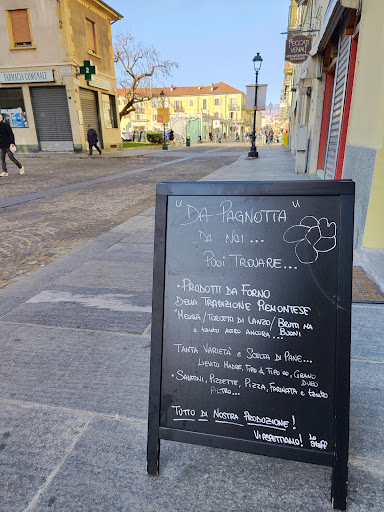 FARMACIA COMUNALE
PECCATI
VENIALI
"DA PAGNOTTA"
DA NOI...
PUOI TROVARE...
• PRODOTTI DA FORNO
DELLA TRADIZIONE PIEMONTESE
MELIGA/TORCETTI DI LANZO/BRUTTI MA
E TANTO ALTRO ANCORA... BUONI
TANTA VARIETA' E SCELTA DI PANE...
LIEVITO MADRE, TIPO 1, TIPO 00, GRANO
DURO
• SALATINI, PIZZETTE, PIZZA, FARINATA E TANTO
ALTRO...
TUTTO DI NOSTRA PRODUZIONE!
VI ASPETTIAMO! LO
STAFF